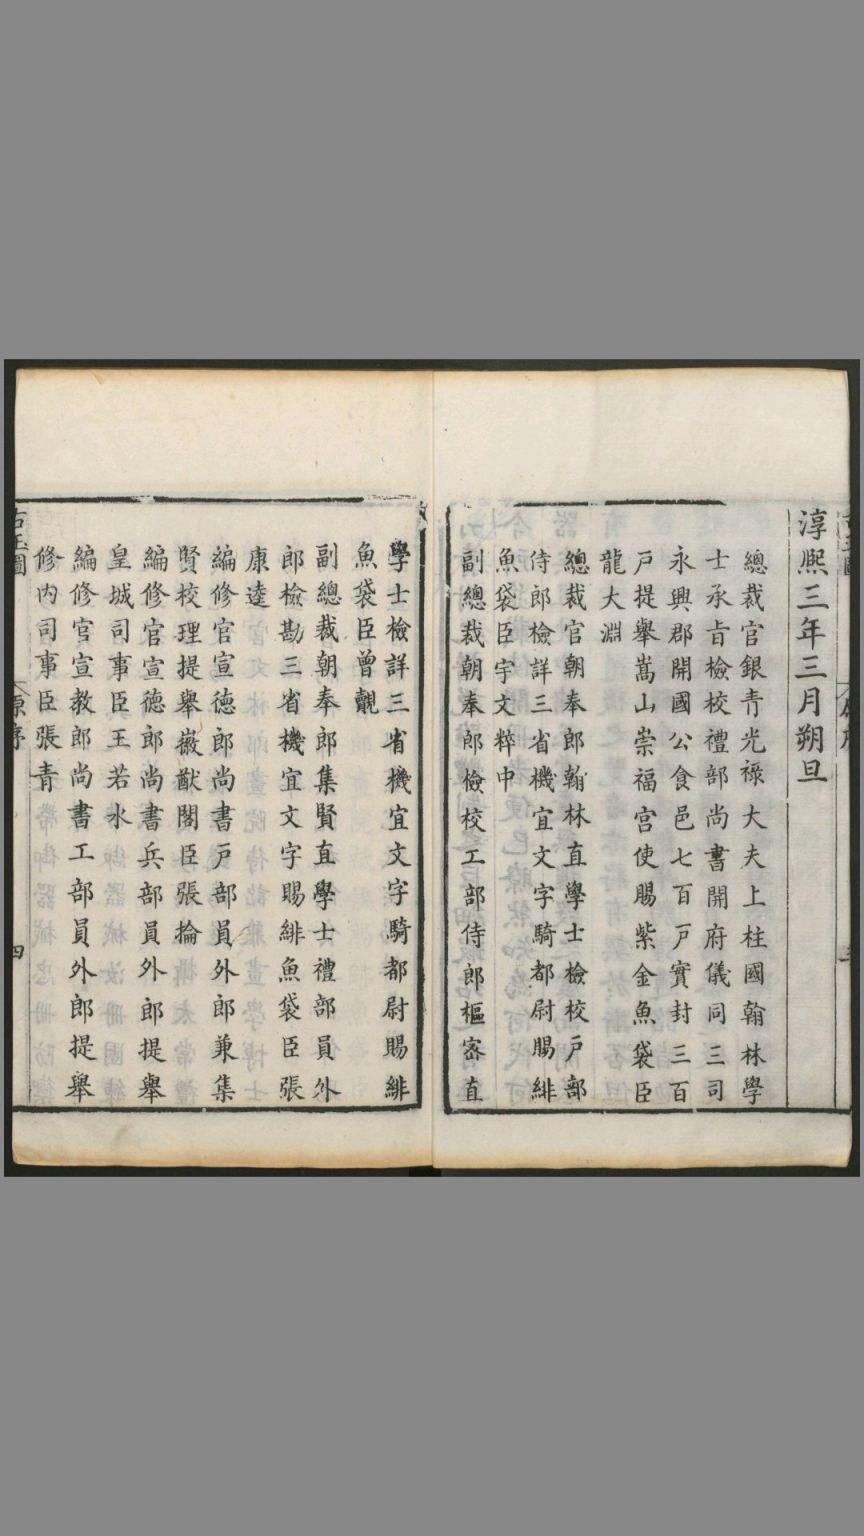 淳熙三年三月朔旦
總裁官銀青光祿大夫上柱國翰林學
士承旨檢校禮部尚書開府儀同三司
永興郡開國公食邑七百戸實封三百
戸提舉嵩山崇福宮使賜紫金魚袋臣
龍大淵
總裁官朝奉郎翰林直學士檢校戸部
侍郎檢詳三省機宜文字騎都尉賜緋
魚袋臣宇文粹中
副總裁朝奉郎檢校工部侍郎樞密直
學士檢詳三省機宜文字騎都尉賜緋
魚袋臣曾覿
副總裁朝奉郎集賢直學士禮部員外
郎檢勘三省機宜文字賜緋魚袋臣張
康逵
編修官宣德郎尚書戸部員外郎兼集
賢校理提舉嶶猷閣臣張掄
編修官宣德郎尚書兵部員外郎提舉
皇城司事臣王若水
編修官宣教郎尚書工部員外郎提舉
修內司事臣張青
古玉圖
原序
四